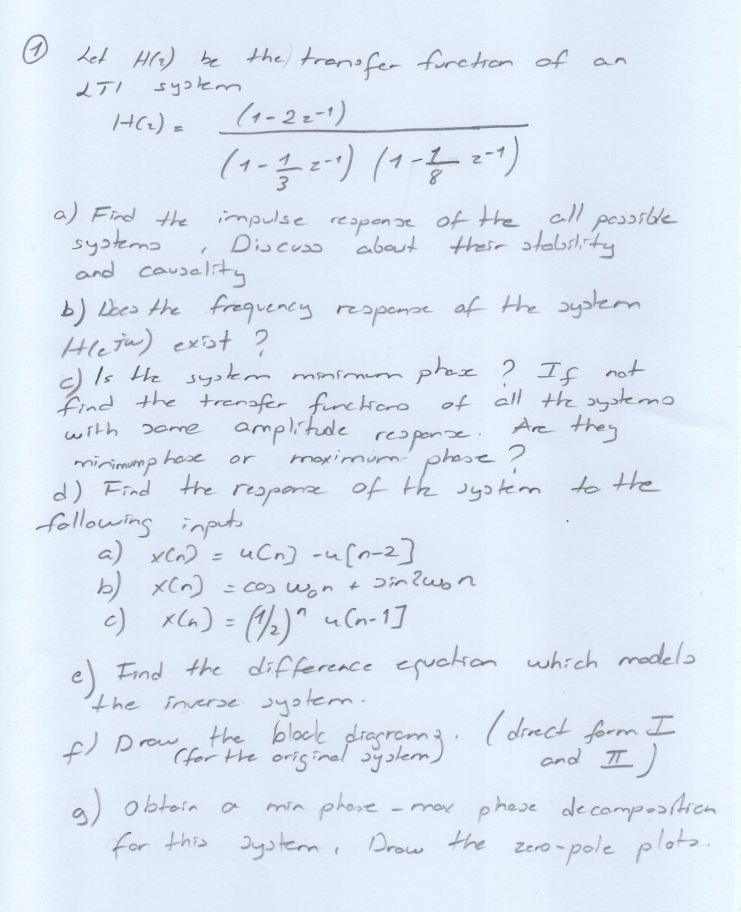 1 Let H(z) be the transfer function of an
LTI system
H(z) = (1-2z⁻¹)
(1-1/3 z⁻¹) (1-1/8 z⁻¹)
a) Find the impulse response of the all possible
systems, Discuss about their stability
and causality
b) Does the frequency response of the system
H(e^jw) exist ?
c) Is the system minimum phase ? If not
find the transfer functions of all the systems
with same amplitude response. Are they
minimumphase or maximum phase ?
d) Find the response of th system to the
following inputs
a) x(n) = u[n] - u[n-2]
b) x(n) = cos w₀n + sin2w₀n
c) x(n) = (1/2)ⁿ u[n-1]
e) Find the difference equation which models
the inverse system.
f) Draw the block diagrams. (direct form I
(for the original system) and II)
g) Obtain a min phase - max phase decomposition
for this system, Draw the zero-pole plots.